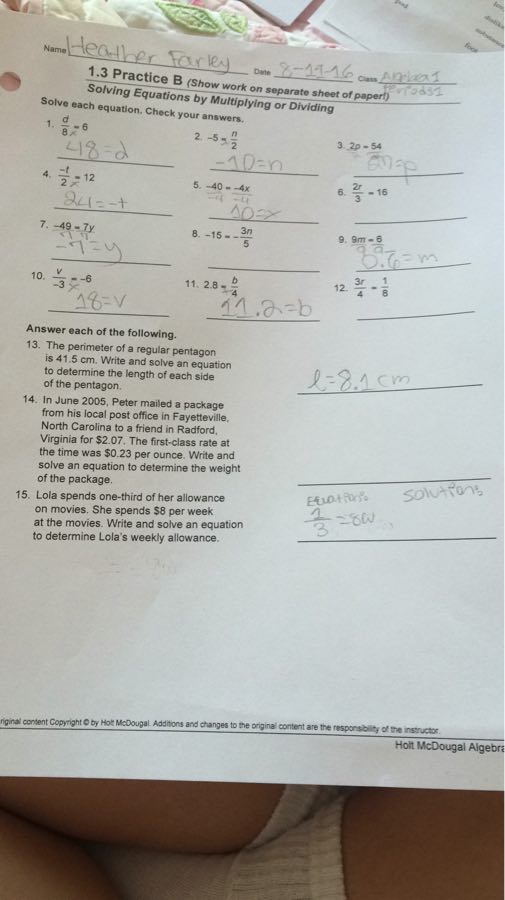 Name Heather Farley Date 8-19-16 Class Algebra 1
Periods 1
1.3 Practice B (Show work on separate sheet of paper!)
Solving Equations by Multiplying or Dividing
Solve each equation. Check your answers.
1. d/8 = 6
48=d
2. -5 = n/2
-10=n
3. 2p = 54
27=p
4. -t/2 = 12
24=-t
5. -40 = -4x
-4 -4
10=x
6. 2r/3 = 16
7. -49 = 7y
7 7
-7=y
8. -15 = -3n/5
9. 9m = 6
9 9
0.6=m
10. v/-3 = -6
18=v
11. 2.8 = b/4
11.2=b
12. 3r/4 = 1/8
Answer each of the following.
13. The perimeter of a regular pentagon
is 41.5 cm. Write and solve an equation
to determine the length of each side
of the pentagon.
l=8.1cm
14. In June 2005, Peter mailed a package
from his local post office in Fayetteville,
North Carolina to a friend in Radford,
Virginia for $2.07. The first-class rate at
the time was $0.23 per ounce. Write and
solve an equation to determine the weight
of the package.
15. Lola spends one-third of her allowance
on movies. She spends $8 per week
at the movies. Write and solve an equation
to determine Lola's weekly allowance.
Equations Solutions
1/3 = 8w
riginal content Copyright © by Holt McDougal. Additions and changes to the original content are the responsibility of the instructor.
Holt McDougal Algebra